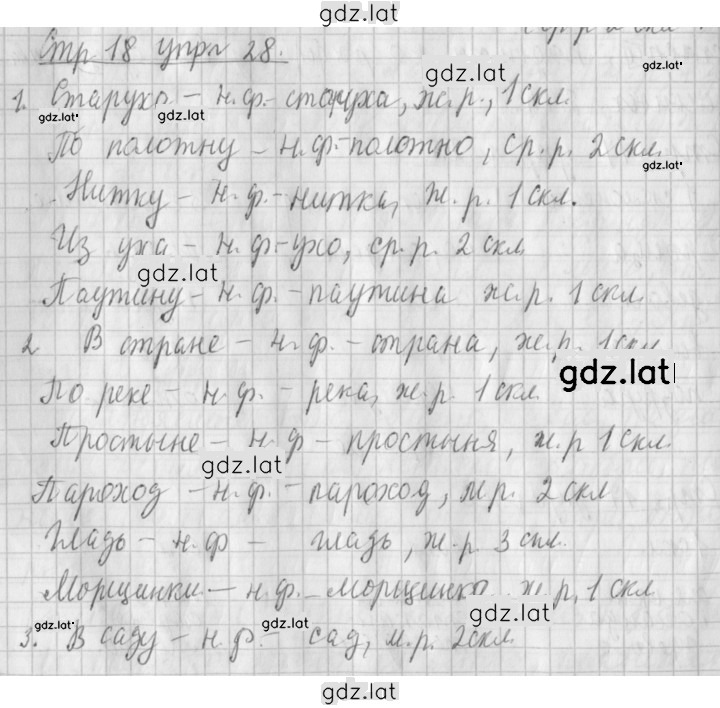 gdz.lat
Стр 18 упр 28.
gdz.lat
1. Старуха – н.ф.- старуха, ж.р., 1 скл.
gdz.lat gdz.lat gdz.lat
По полотну – н.ф.- полотно, ср.р. 2 скл.
gdz.lat
Нитку – н.ф.- нитка, ж.р. 1 скл.
Из уха – н.ф.-ухо, ср.р. 2 скл
gdz.lat
Паутину – н.ф.- паутина ж.р. 1 скл.
2. В стране – н.ф.- страна, ж.р. 1 скл
gdz.lat
По реке – н.ф.- река, ж.р. 1 скл.
Простыне – н.ф – простыня, ж.р 1 скл.
gdz.lat
Пароход – н.ф.- пароход, м.р. 2 скл
Гладь – н.ф – гладь, ж.р. 3 скл.
Морщинки – н.ф.- морщинка ж.р. 1 скл
gdz.lat gdz.lat gdz.lat
3. В саду – н.ф.- сад, м.р. 2 скл.
gdz.lat